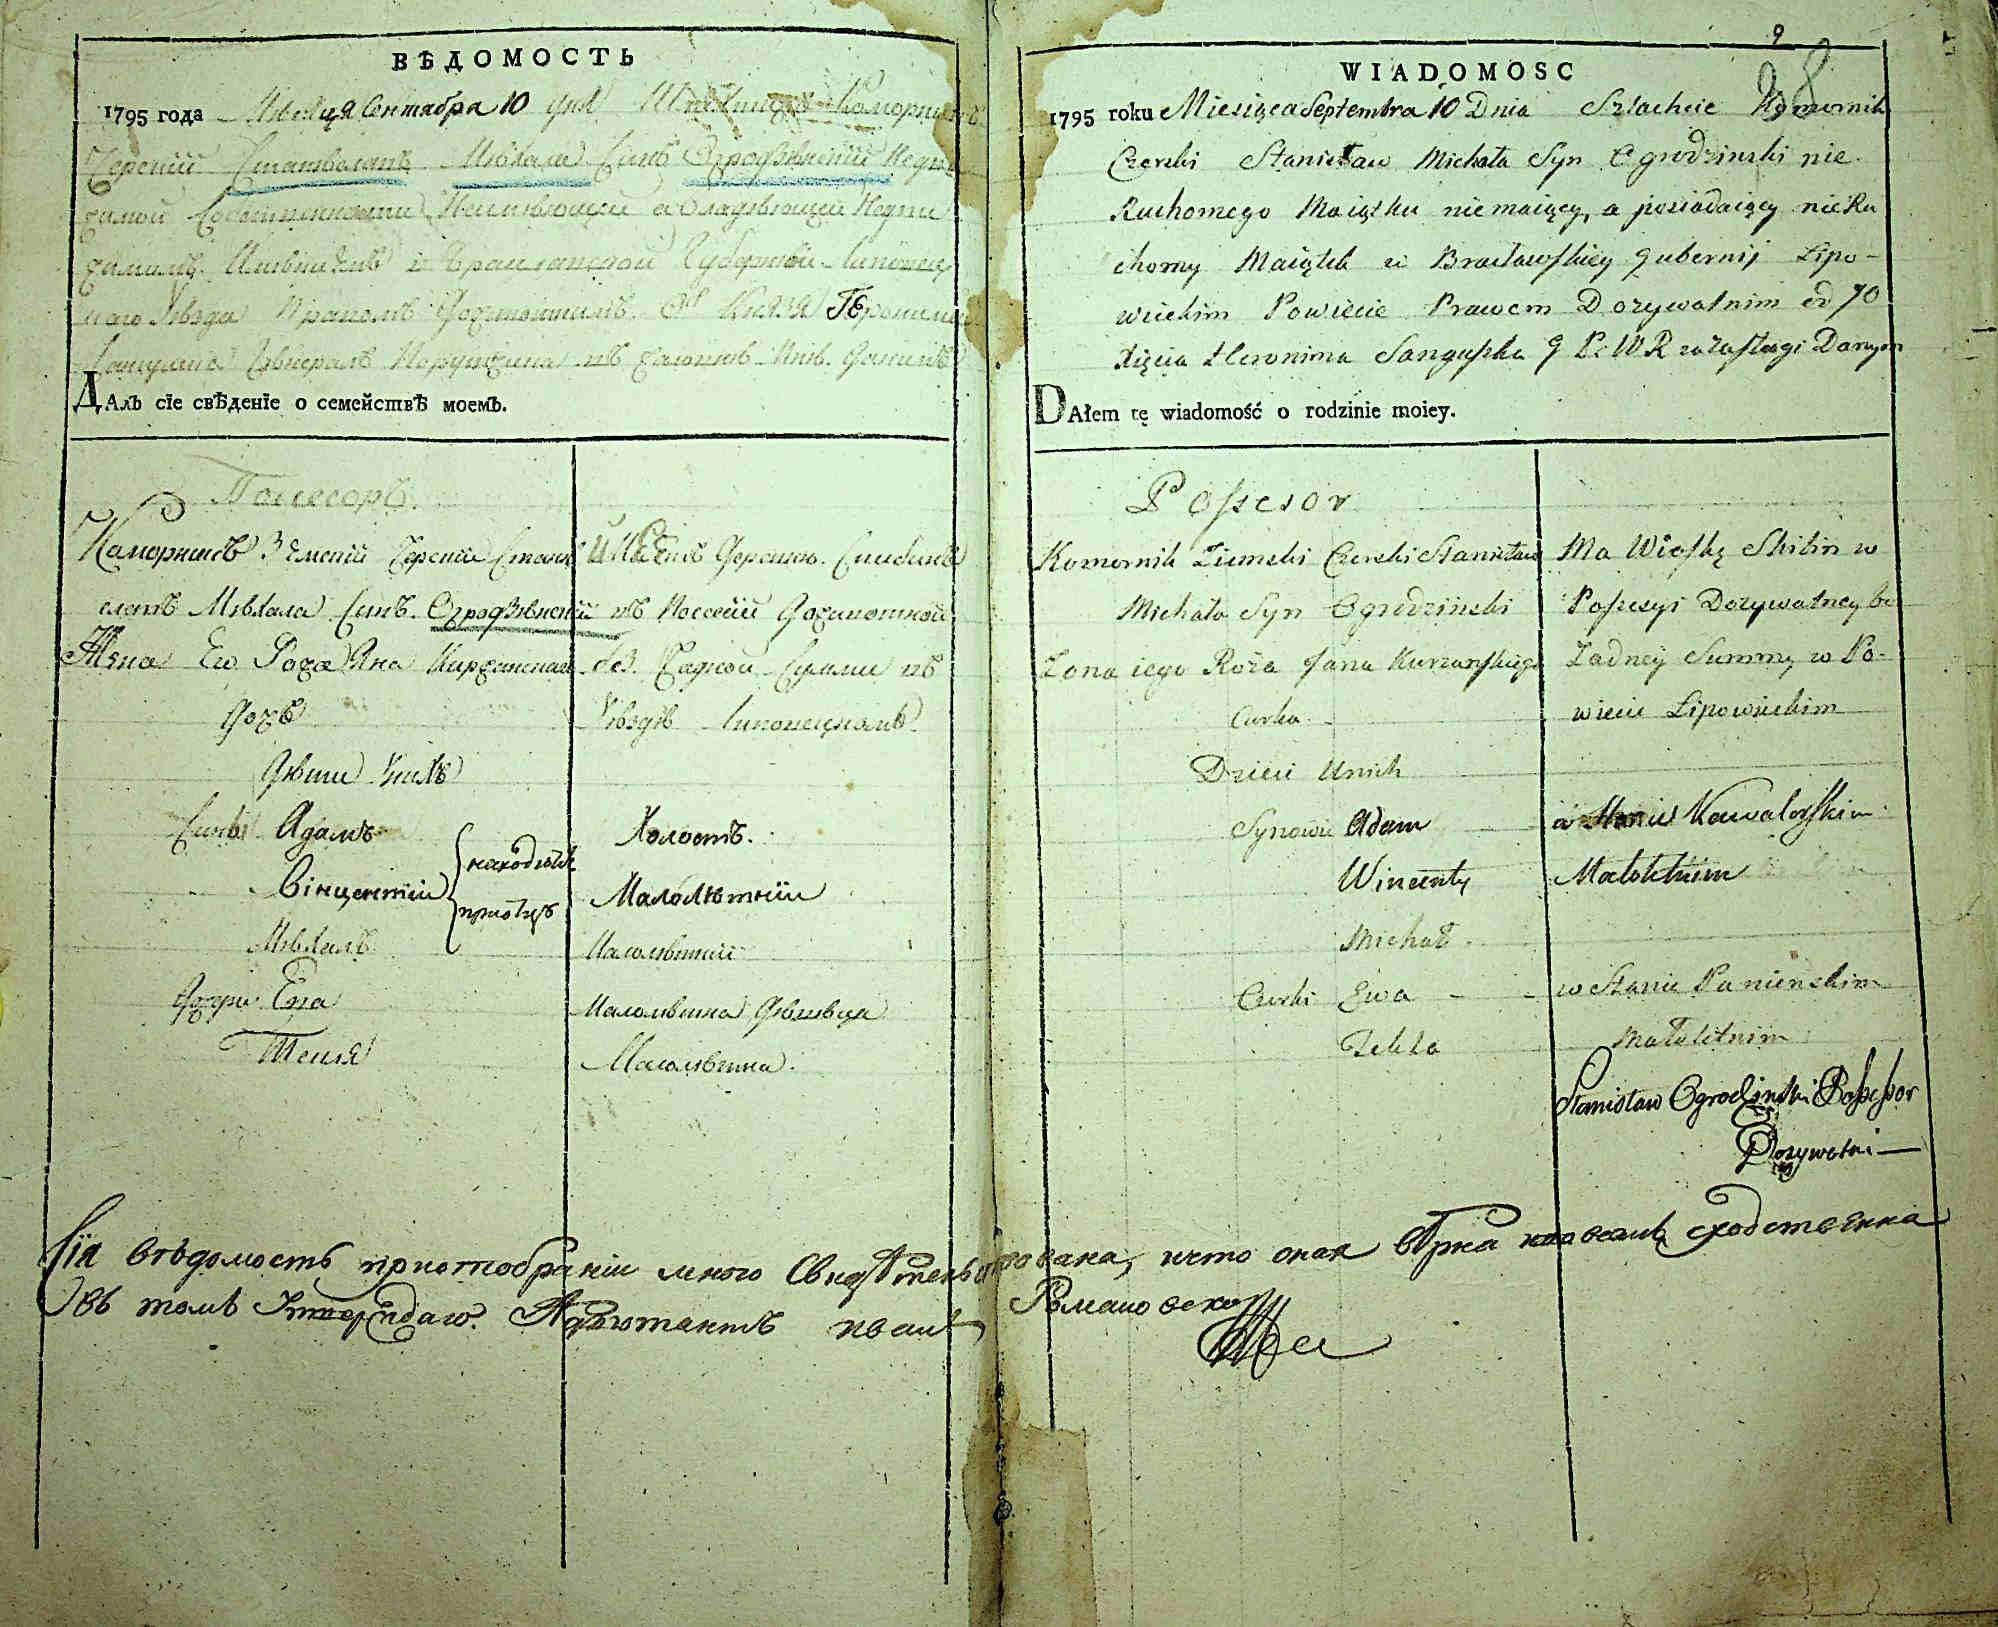 ВѢДОМОСТЬ
1795 года Мѣсяця Сентября 10 дня Шляхтичъ Коморникъ
Черскій Станиславъ Мѣхала Синъ Огродзѣнскій Недви
жимой Собственности Неимѣющій а Владѣющій Недви
жимимъ Имѣниемъ в Браславской Губерніи Липовец
каго Уѣзда Правомъ Доживотнимъ От Князя Геронима
Сангушка
ДАлъ сіе свѣденіе о семействѣ моемъ.
Посесоръ
Каморникъ Земскій Черскій Стани
славъ Мѣхала Синъ Огродзѣнскій
Жена Его Рожа Яна Куржанскаго
Дочъ
Дѣти Унихъ
Сыны Адамъ
Вінцентій
Мѣхалъ
находятся
приотцѣ
Дочери Ева
Текля
Имѣетъ Деревню Скибинъ
въ Посесіи Доживотной
без жадной Суммы въ
Уѣздѣ Липовецкомъ
Холостъ.
Малолѣтній
Малолѣтній
Малолѣтна Дѣвица
Малолѣтна.
9
98
WIADOMOSC
1795 roku Miesiąca Septembra 10 Dnia Szlachcic Komornik
Czerski Stanisław Michała Syn Ogrodzinski nie
Ruchomego Maiątku niemaiący, a posiadaiący nieRu
chomy Maiątek w Bracławskiey Gubernij Lipo-
wieckim Powiecie Prawem Dożywotnim od JO
Xięcia Hieronima Sanguszka G P: W R zazasługi Danym
DAłem tę wiadomość o rodzinie moiey.
Possesor
Komornik Ziemski Czerski Stanisław
Michała Syn Ogrodzinski
Zona iego Roża Jana Kurzanskiego
Curka
Dzieci Unich
Synowie Adam
Wincenty
Michał
Curki Ewa
Tekla
Ma Wioskę Skibin w
Possesyi Dozywotney be
Zadney Summy w Po-
wiecie Lipowieckim
w Stanie Kawalerskim
Małoletnim
w Stanie Panienskim
Małoletnim
Stanisław Ogrodzinski Possessor
Dozywotni
Сія вѣдомость приотобраніи мною Свидѣтельствована, что оная вѣрна и совсемъ сходственна
Въ томъ Адъютантъ Иванъ Романовской